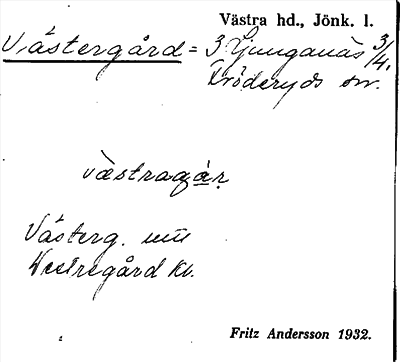 Västra hd., Jönk. l.
Västergård = 3 Ljunganäs 3/4.
Fröderyds sn.
västragá̱r
Västerg. uu
Westregård kv.
Fritz Andersson 1932.